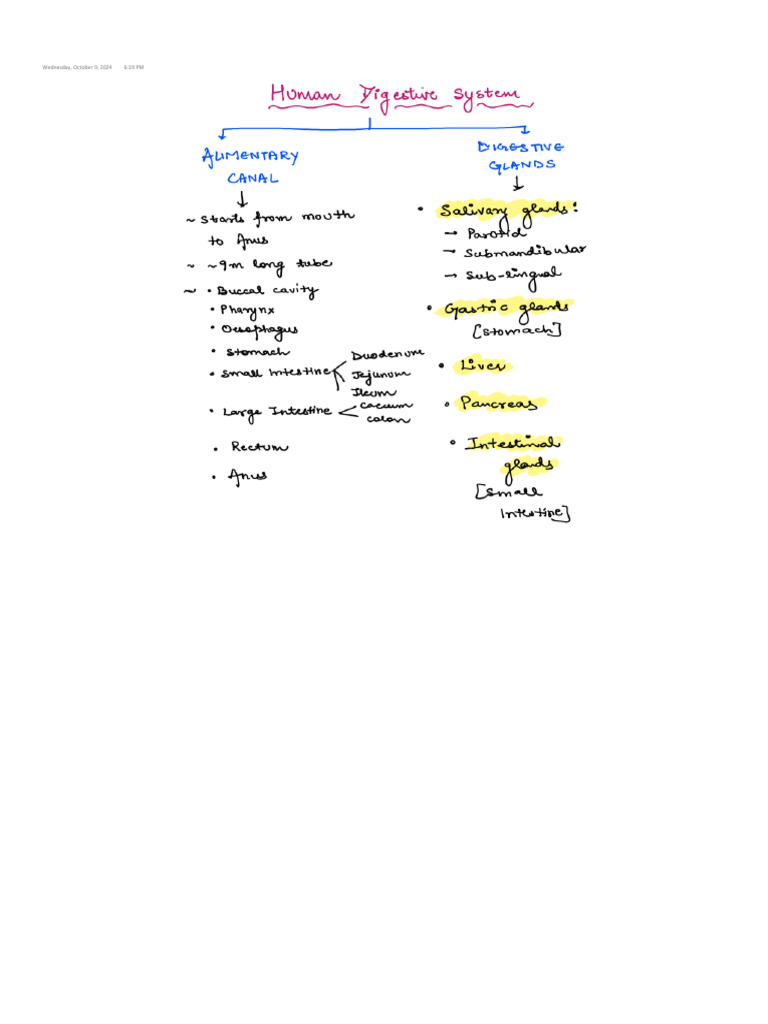 Wednesday, October 9, 2024 6:19 PM
Human Digestive System
ALIMENTARY
CANAL
~ starts from mouth
to Anus
~ ~9m long tube
~ • Buccal cavity
• Pharynx
• Oesophagus
• Stomach
• Small Intestine
Duodenum
Jejunum
Ileum
• Large Intestine
caecum
colon
• Rectum
• Anus
DIGESTIVE
GLANDS
• Salivary glands:
→ Parotid
→ Submandibular
→ Sub-lingual
• Gastric glands
[Stomach]
• Liver
• Pancreas
• Intestinal
glands
[Small
Intestine]